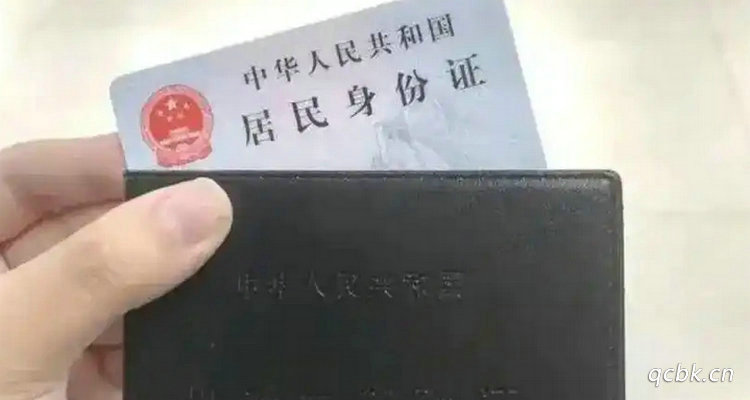 中华人民共和国
居民身份证
中华人民共和国
qcbk.cn